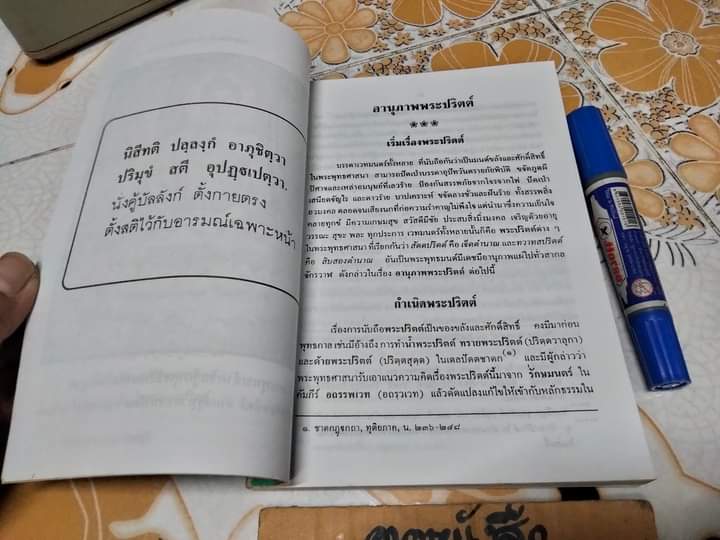 นิสีทติ ปลฺลงฺกํ อาภุชิตฺวา
ปริมุขํ สตึ อุปฏฺฐเปตฺวา.
นั่งคู้บัลลังก์ ตั้งกายตรง
ตั้งสติไว้กับอารมณ์เฉพาะหน้า
อานุภาพพระปริตต์
เริ่มเรื่องพระปริตต์
บรรดาเวทมนตร์ทั้งหลาย ที่นับถือกันว่าเป็นมนต์ขลังและศักดิ์สิทธิ์
ในพระพุทธศาสนา สามารถปัดเป่าบรรดาอุปัทวันตรายภัยพิบัติ ขจัดภูตผี
ปีศาจและเหล่าอมนุษย์ที่เลวร้าย ป้องกันสรรพภัยจากโจรจากไฟ ปัดเป่า
เสนียดจัญไร และดาวร้าย บาปเคราะห์ ขจัดลางชั่วและฝันร้าย ทั้งสรรพสิ่ง
อวมงคล ตลอดจนเสียงนกที่ก่อความรำคาญไม่พึงใจ แต่นำมาซึ่งความเย็นใจ
คลายทุกข์ มีความเกษมสุข สวัสดีมีชัย ประสบสิ่งมิ่งมงคล เจริญด้วยอายุ
วรรณะ สุขะ พละ ทุกประการ เวทมนตร์ทั้งหลายนั้นก็คือ พระปริตต์ต่าง ๆ
ในพระพุทธศาสนา ที่เรียกกันว่า สัตตปริตต์ คือ เจ็ดตำนาน และทวาทสปริตต์
คือ สิบสองตำนาน อันเป็นพระพุทธมนต์มีเดชมีอานุภาพแผ่ไปทั่วสากล
จักรวาฬ ดังกล่าวในเรื่อง อานุภาพพระปริตต์ ต่อไปนี้
กำเนิดพระปริตต์
เรื่องการนับถือพระปริตต์เป็นของขลังและศักดิ์สิทธิ์ คงมีมาก่อน
พุทธกาล เช่นมีอ้างถึง การทำน้ำพระปริตต์ ทรายพระปริตต์ (ปริตฺตวาลุกา)
และด้ายพระปริตต์ (ปริตฺตสุตฺต) ในเตลปัตตชาดก(๑) และมีผู้กล่าวว่า
พระพุทธศาสนารับเอาแนวความคิดเรื่องพระปริตต์นี้มาจาก รักษมนตร์ ใน
คัมภีร์ อถรรพเวท (อถรฺวเวท) แล้วดัดแปลงแก้ไขให้เข้ากับหลักธรรมใน
๑. ชาตกฏฺฐกถา, ทุติยภาค, น. ๒๓๖-๒๔๘
Horse